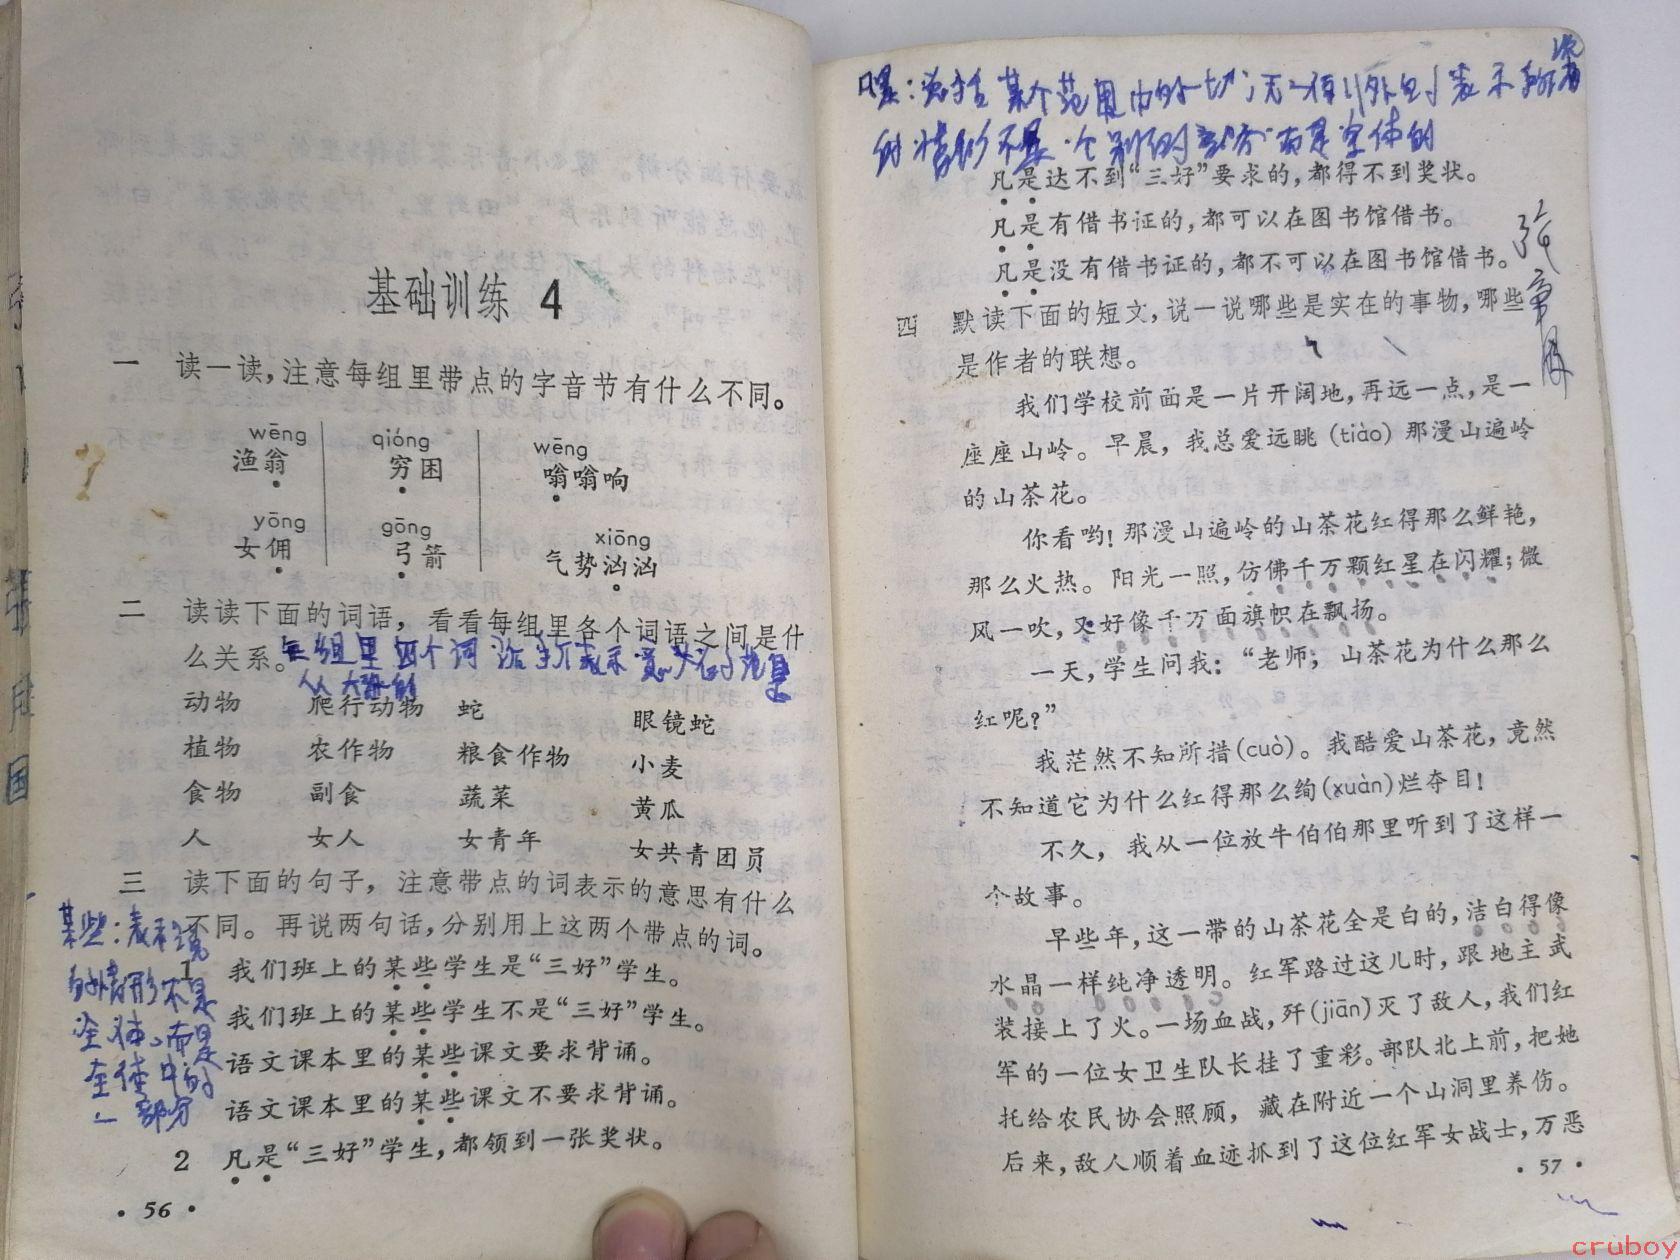 基础训练 4
一 读一读，注意每组里带点的字音节有什么不同。
wēng qióng wēng
渔翁 穷困 嗡嗡响
yōng gōng xiōng
女佣 弓箭 气势汹汹
二 读读下面的词语，看看每组里各个词语之间是什
么关系。
动物 爬行动物 蛇 眼镜蛇
植物 农作物 粮食作物 小麦
食物 副食 蔬菜 黄瓜
人 女人 女青年 女共青团员
三 读下面的句子，注意带点的词表示的意思有什么
不同。再说两句话，分别用上这两个带点的词。
某些：表示
的情形不是
全体，而是
全体中的
一部分
1 我们班上的某些学生是“三好”学生。
我们班上的某些学生不是“三好”学生。
语文课本里的某些课文要求背诵。
语文课本里的某些课文不要求背诵。
2 凡是“三好”学生，都领到一张奖状。
·56·
凡是达不到“三好”要求的，都得不到奖状。
凡是有借书证的，都可以在图书馆借书。
凡是没有借书证的，都不可以在图书馆借书。
四 默读下面的短文，说一说哪些是实在的事物，哪些
是作者的联想。
我们学校前面是一片开阔地，再远一点，是一
座座山岭。早晨，我总爱远眺(tiào)那漫山遍岭
的山茶花。
你看哟！那漫山遍岭的山茶花红得那么鲜艳，
那么火热。阳光一照，仿佛千万颗红星在闪耀；微
风一吹，又好像千万面旗帜在飘扬。
一天，学生问我：“老师，山茶花为什么那么
红呢？”
我茫然不知所措(cuò)。我酷爱山茶花，竟然
不知道它为什么红得那么绚(xuàn)烂夺目！
不久，我从一位放牛伯伯那里听到了这样一
个故事。
早些年，这一带的山茶花全是白的，洁白得像
水晶一样纯净透明。红军路过这儿时，跟地主武
装接上了火。一场血战，歼(jiān)灭了敌人，我们红
军的一位女卫生队长挂了重彩。部队北上前，把她
托给农民协会照顾，藏在附近一个山洞里养伤。
后来，敌人顺着血迹抓到了这位红军女战士，万恶
·57·
cruboy